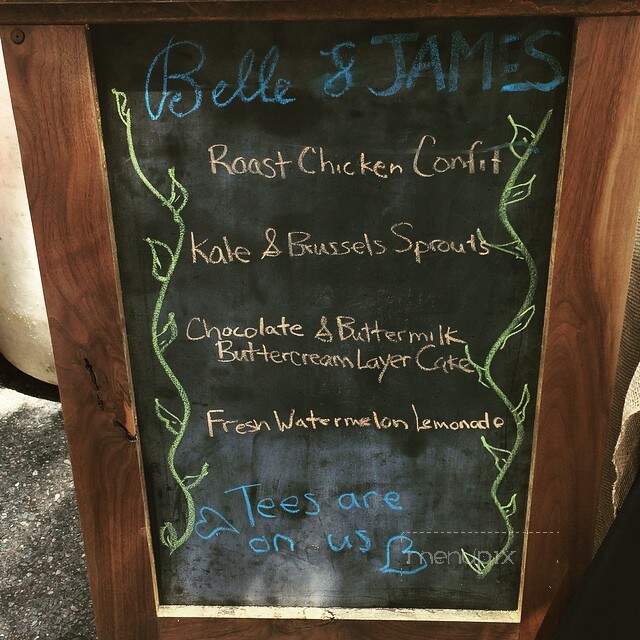 Belle & JAMES
Roast Chicken Confit
Kale & Brussels Sprouts
Chocolate & Buttermilk
Buttercream Layer Cake
Fresh Watermelon Lemonade
Tees are
on us
menupix